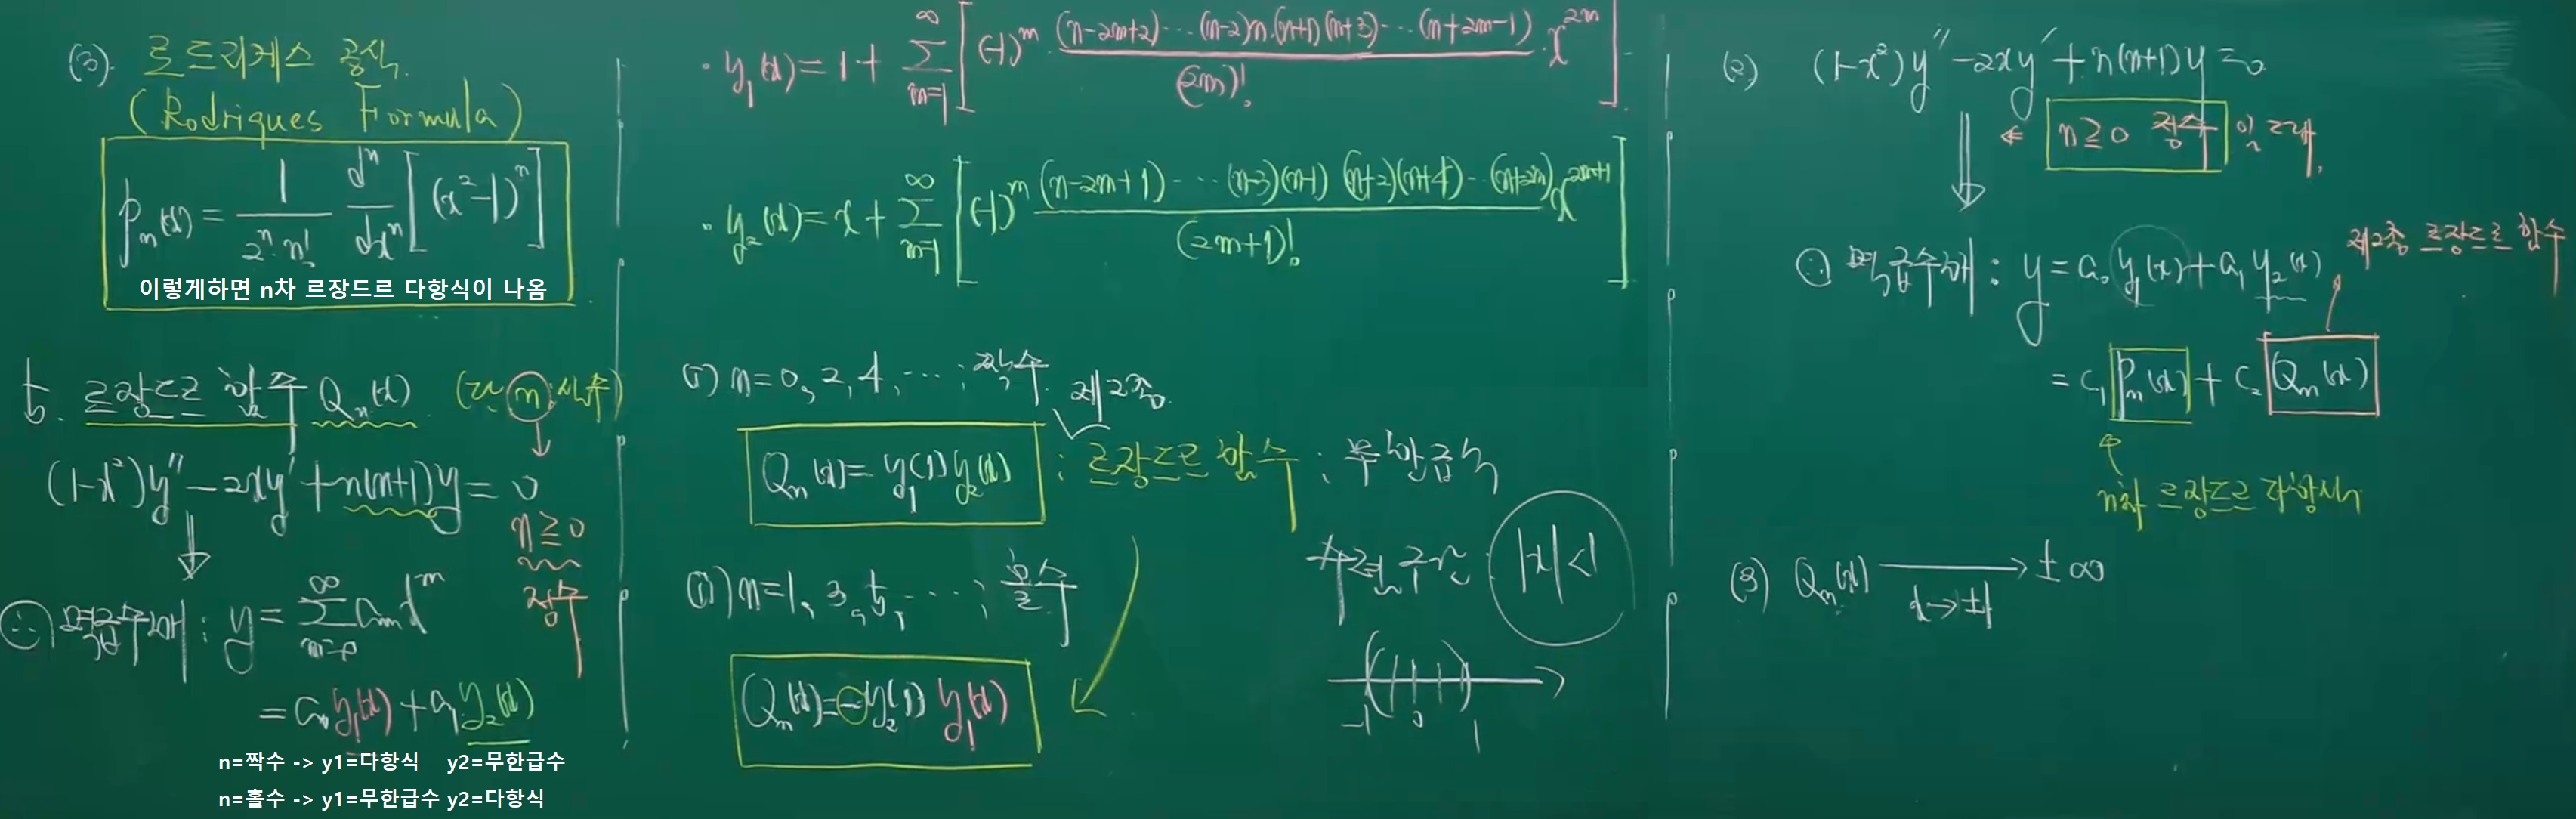 (3). 로드리게스 공식.
(Rodriques Formula)
Pₙ(x) = 1/(2ⁿ·n!) dⁿ/dxⁿ [(x²-1)ⁿ]
이렇게하면 n차 르장드르 다항식이 나옴
5. 르장드르 함수 Qₙ(x) (단 n:상수)
(1-x²)y″-2xy′+n(n+1)y=0
n≧0
정수
∴ 멱급수해 : y=∑_{m=0}^{∞} aₘxᵐ
=a₀y₁(x)+a₁y₂(x)
n=짝수 -> y1=다항식 y2=무한급수
n=홀수 -> y1=무한급수 y2=다항식
· y₁(x)=1+∑_{m=1}^{∞}[(-1)ᵐ·(n-2m+2)⋯(n-2)n·(n+1)(n+3)⋯(n+2m-1)/(2m)!·x^{2m}]
· y₂(x)=x+∑_{m=1}^{∞}[(-1)ᵐ (n-2m+1)⋯(n-3)(n-1)(n+2)(n+4)⋯(n+2m)/(2m+1)! x^{2m+1}]
(i) n=0, 2, 4, ⋯ ; 짝수
제2종
Qₙ(x)=y₁(1)y₂(x) : 르장드르 함수 : 무한급수
수렴구간 : |x|<1
(ii) n=1, 3, 5, ⋯ ; 홀수
Qₙ(x)=-y₂(1)y₁(x)
-1 0 1
(2) (1-x²)y″-2xy′+n(n+1)y=0
← n≧0 정수 일 때,
∴ 멱급수해 : y=a₀y₁(x)+a₁y₂(x)
제2종 르장드르 함수
=c₁Pₙ(x)+c₂Qₙ(x)
n차 르장드르 다항식
(3) Qₙ(x) → ±∞
x→±1